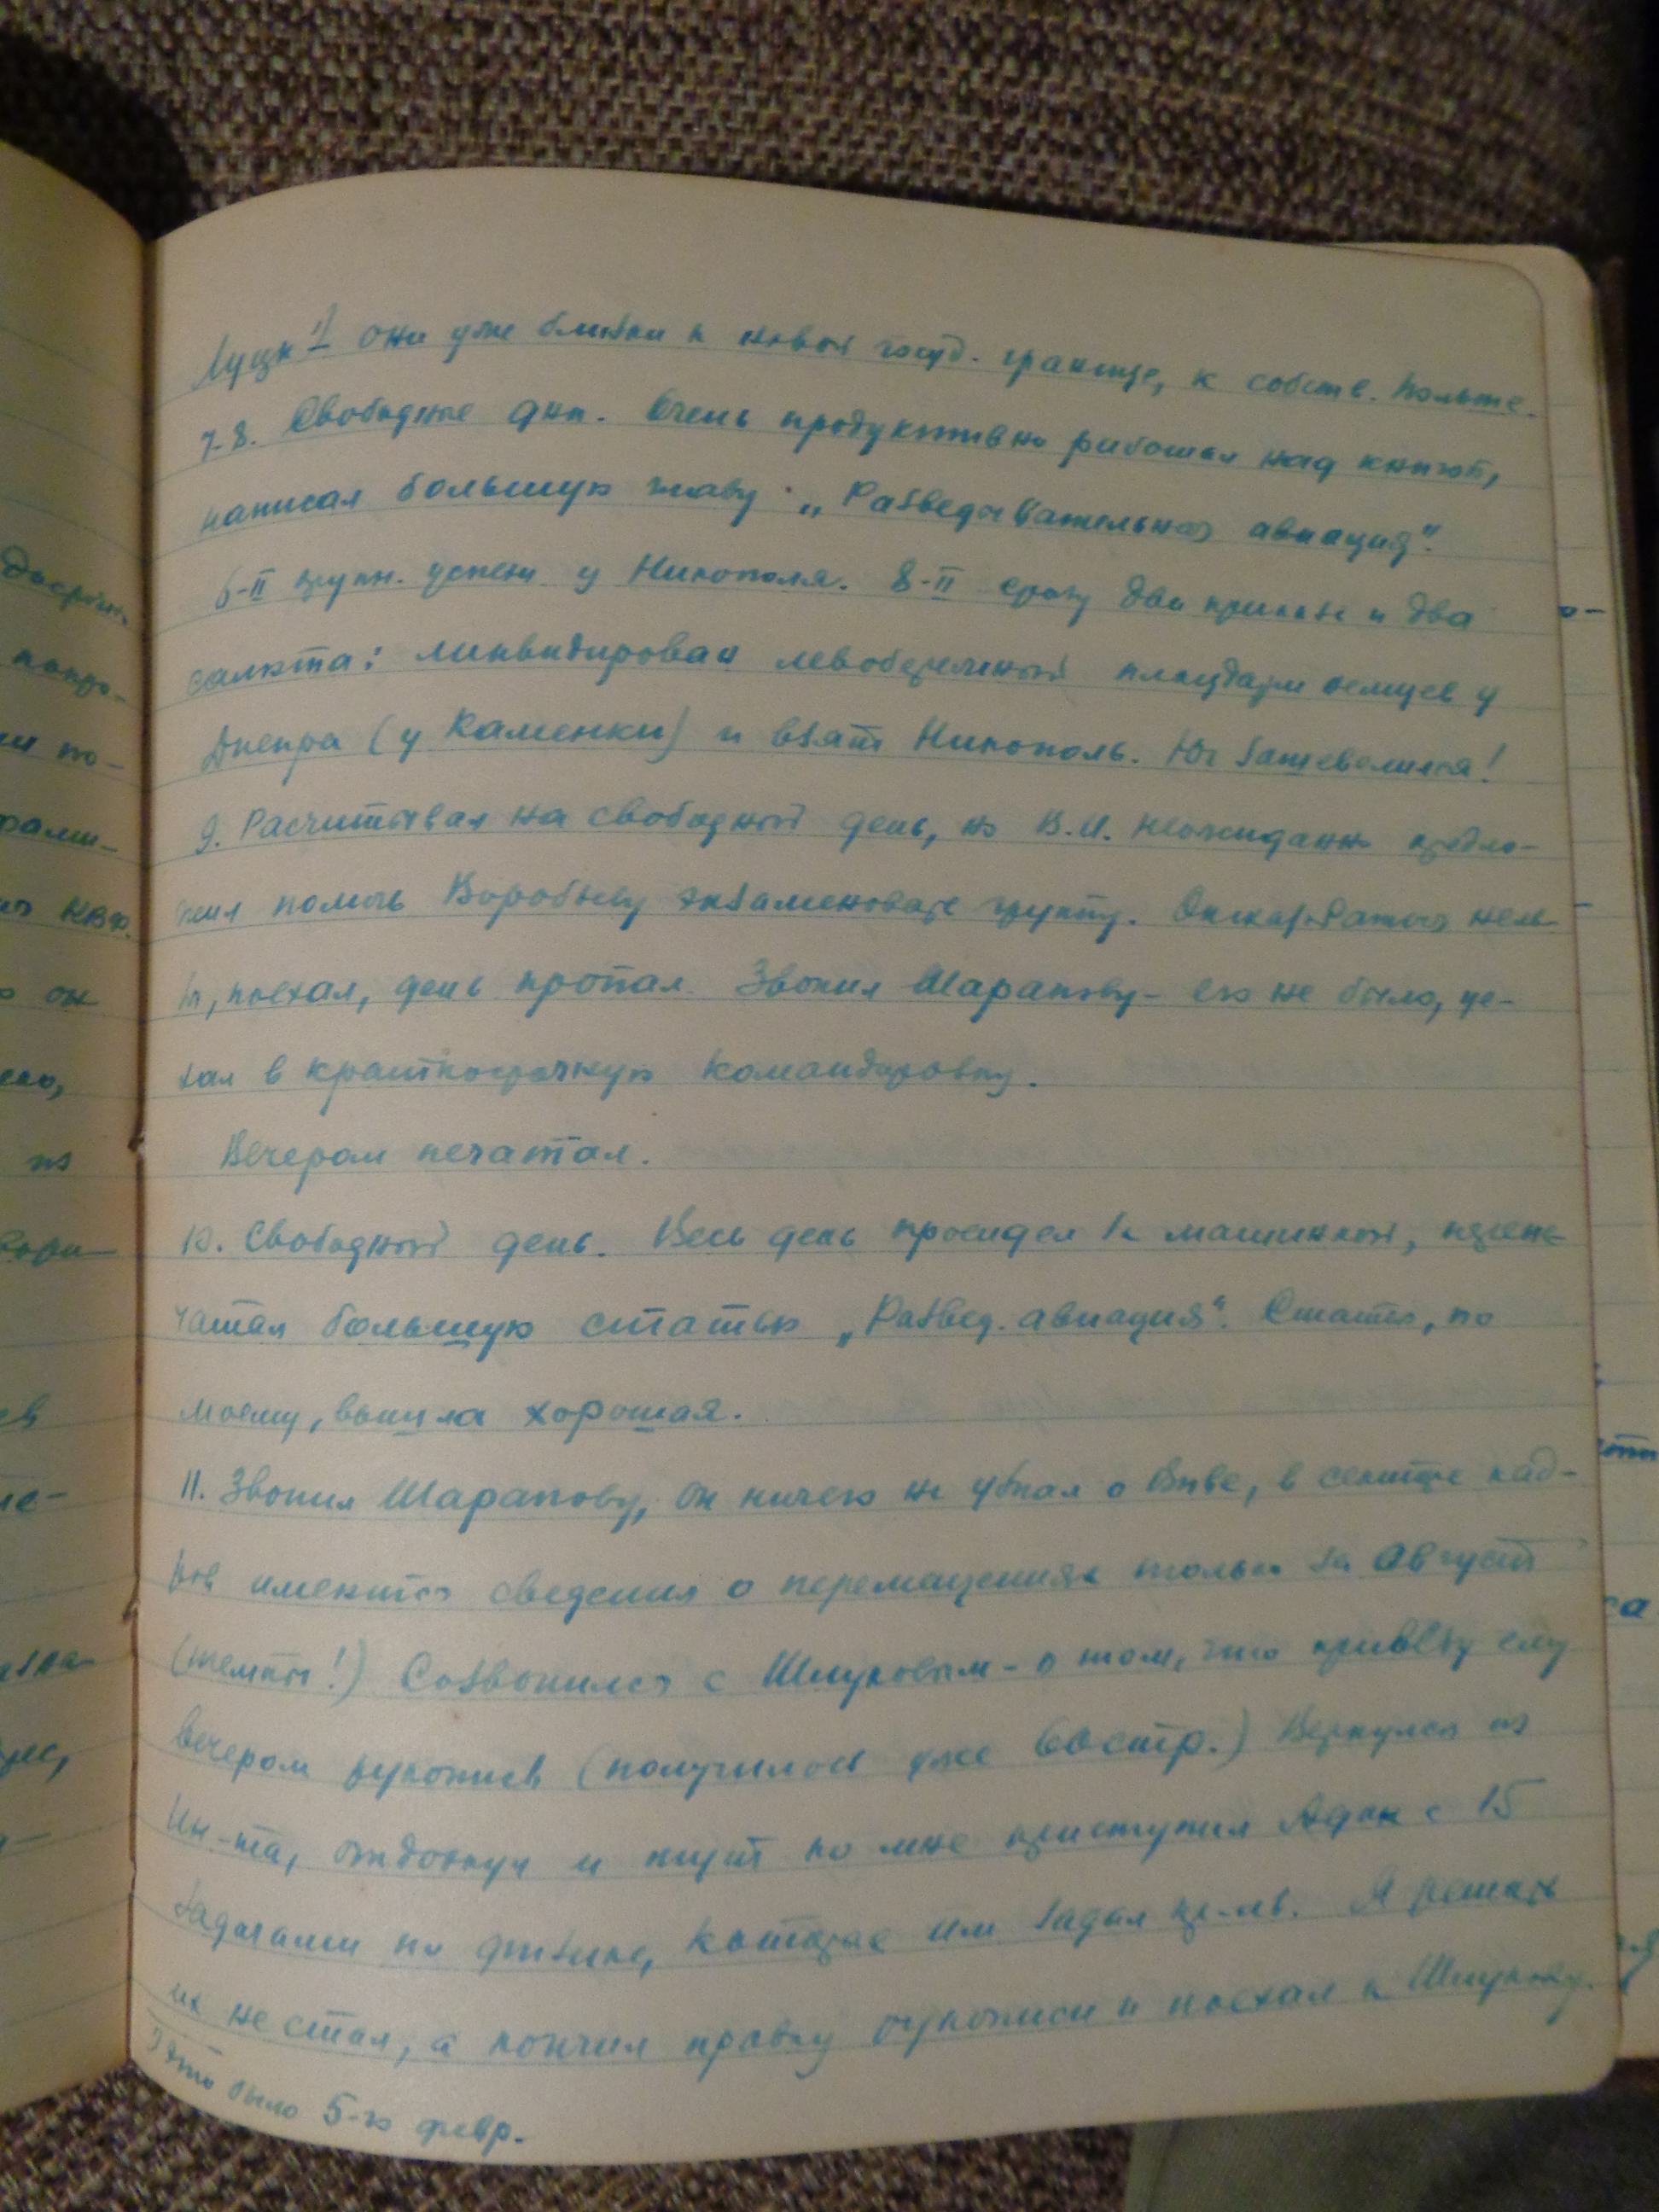 Луцк ¹) они уже близки к новой госуд. границе, к собств. Польше.
7-8. Свободные дни. Очень продуктивно работал над книгой,
написал большую главу „Разведывательная авиация".
6-II крупн. успехи у Никополя. 8-II сразу два приказа и два
салюта: ликвидирован левобережный плацдарм немцев у
Днепра (у Каменки) и взят Никополь. Юг зашевелился!
9. Расчитывал на свободный день, но В.И. неожиданно предло-
жил помочь Воробьеву экзаменовать группу. Отказаться нель-
зя, поехал, день пропал. Звонил Шарапову – его не было, уе-
хал в краткосрочную командировку.
Вечером печатал.
10. Свободный день. Весь день просидел за машинкой, перепе-
чатал большую статью „Развед. авиация". Статья, по
моему, вышла хорошая.
11. Звонил Шарапову, он ничего не узнал о Виве, в секторе кад-
ров имеются сведения о перемещениях только за август
(темпы!) Созвонился с Шмуковым – о том, что привезу ему
вечером рукопись (получилось уже 60 стр.) Вернулся из
Ин-та, отдохнул и тут ко мне приступил Адик с 15
задачами по физике, которые им задал пр-ль. Я решать
их не стал, а кончил правку рукописи и поехал к Шмукову.
¹) Это было 5-го февр.
досрочн.
по-
КВФ.
он
из